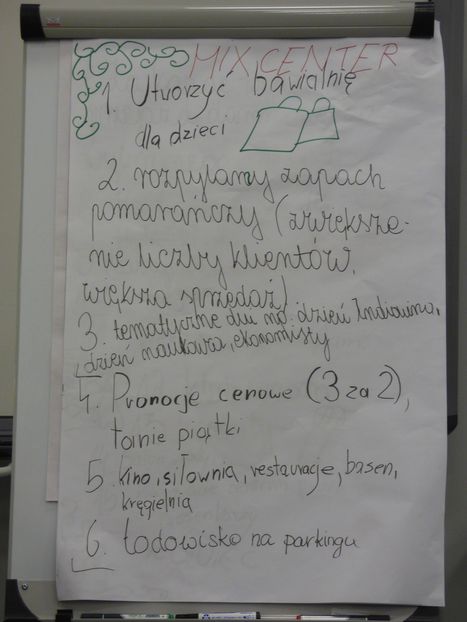 MIX CENTER
1. Utworzyć bawialnię
dla dzieci
2. rozpylany zapach
pomarańczy (zwiększe-
nie liczby klientów,
większa sprzedaż)
3. tematyczne dni np. dzień Indianina,
dzień naukowca, ekonomisty
4. Promocje cenowe (3 za 2),
tanie piątki
5. kino, siłownia, restauracje, basen,
kręgielnia
6. Lodowisko na parkingu